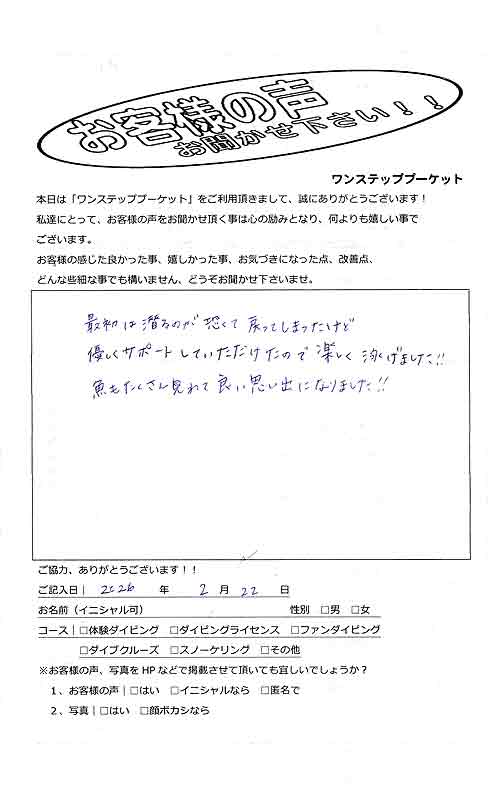 お客様の声
お聞かせ下さい！！
ワンステッププーケット
本日は「ワンステッププーケット」をご利用頂きまして、誠にありがとうございます！
私達にとって、お客様の声をお聞かせ頂く事は心の励みとなり、何よりも嬉しい事で
ございます。
お客様の感じた良かった事、嬉しかった事、お気づきになった点、改善点、
どんな些細な事でも構いません、どうぞお聞かせ下さいませ。
最初は潜るのが恐くて戻ってしまったけど
優しくサポートしていただけたので楽しく泳げました!!
魚もたくさん見れて良い思い出になりました!!
ご協力、ありがとうございます！！
ご記入日| 2026 年 2 月 22 日
お名前（イニシャル可） 性別 □男 □女
コース|□体験ダイビング □ダイビングライセンス □ファンダイビング
□ダイブクルーズ □スノーケリング □その他
※お客様の声、写真をHPなどで掲載させて頂いても宜しいでしょうか？
1、お客様の声|□はい □イニシャルなら □匿名で
2、写真|□はい □顔ボカシなら